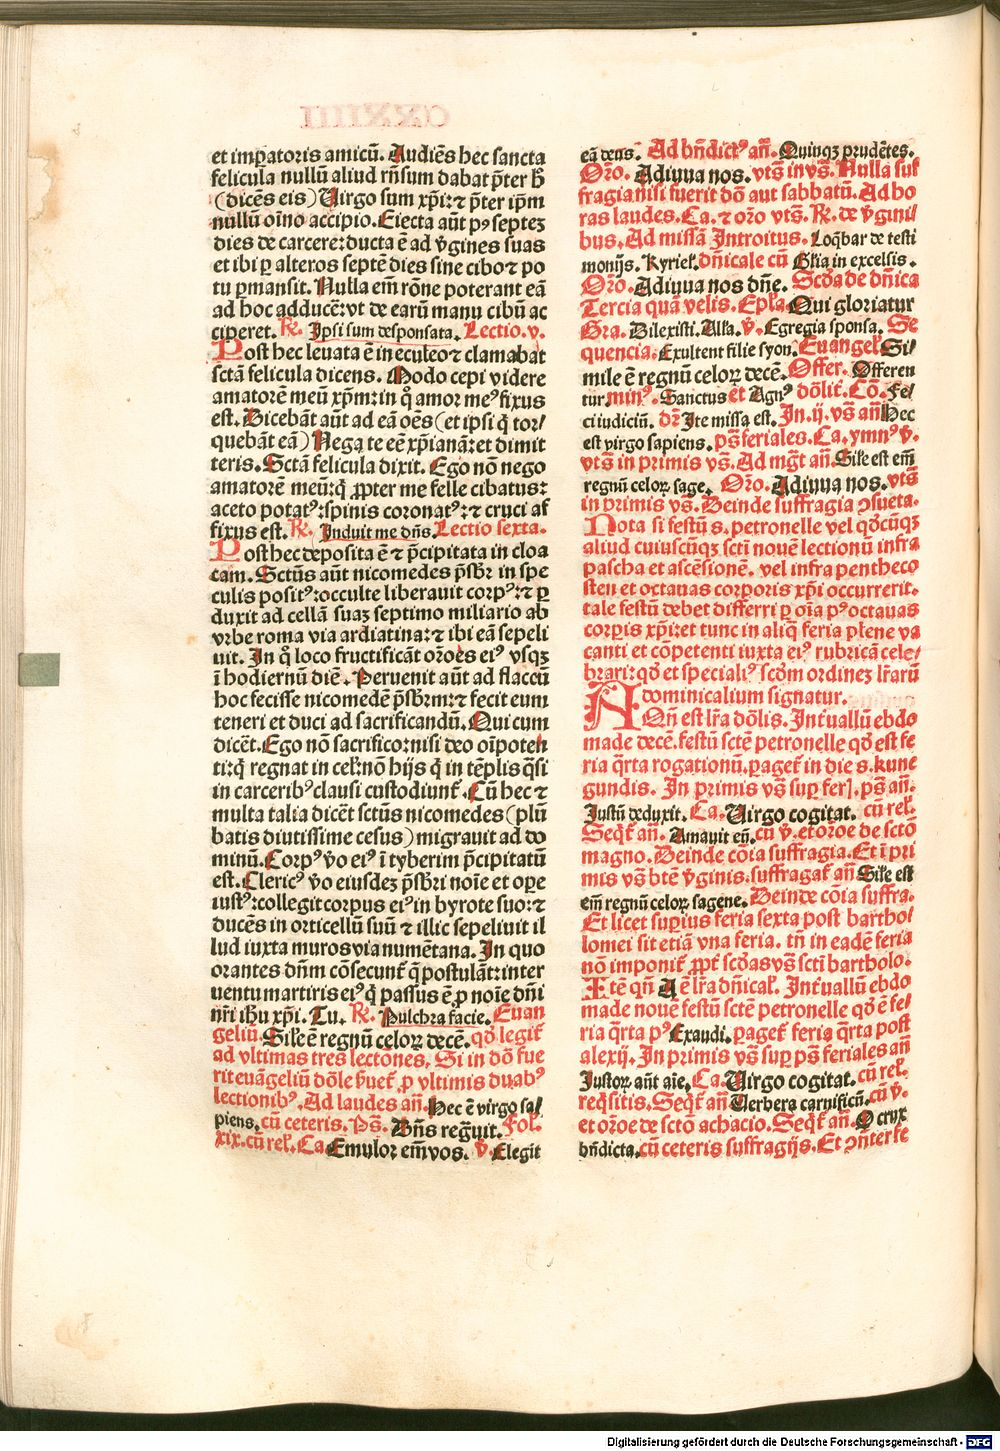 et imꝑatoris amicū. Audiēs hec sancta
felicula nullū aliud rñsum dabat p̄ter ħ
(dicēs eis) Virgo sum xp̄i:⁊ p̄ter ip̄m
nullū oīno accipio. Eiecta aūt pꝰ septeꝫ
dies de carcere:ducta ē ad v̄gines suas
et ibi ꝑ alteros septē dies sine cibo ⁊ po
tu ꝑmansit. Nulla em̄ rōne poterant eā
ad hoc adducē:vt de earū manu cibū ac
ciperet. R̄. Ipsi sum desponsata. Lectio.v.
Post hec leuata ē in eculeo ⁊ clamabat
sctā felicula dicens. Modo cepi videre
amatorē meū xp̄m:in q̊ amor meꝰ fixus
est. Dicebāt aūt ad eā oēs (et ipsi q̇ tor/
quebāt eā) Nega te eē xp̄ianā:et dimit
teris. Sctā felicula dixit. Ego nō nego
amatorē meū:q̇ ꝓpter me felle cibatus:
aceto potatꝰ:spinis coronatꝰ:⁊ cruci af
fixus est. R̄. Induit me dn̄s. Lectio sexta.
Post hec deposita ē ⁊ p̄cipitata in cloa
cam. Sctūs aūt nicomedes p̄sbr̄ in spe
culis positꝰ:occulte liberauit corpꝰ:⁊ ꝑ
duxit ad cellā suaꝫ septimo miliario ab
vrbe roma via ardiatina:⁊ ibi eā sepeli
uit. In q̊ loco fructificāt orōes eiꝰ vsqꝫ
ī hodiernū diē. Peruenit aūt ad flaccū
hoc fecisse nicomedē p̄sbr̄m:⁊ fecit eum
teneri et duci ad sacrificandū. Qui cum
dicēt. Ego nō sacrifico:nisi deo oīpoten
ti:q̇ regnat in cel̄:nō hijs q̇ in tēplis q̄si
in carceribꝰ clausi custodiunt̄. Cū hec ⁊
multa talia dicēt sctūs nicomedes (plū
batis diutissime cesus) migrauit ad do
minū. Corpꝰ v̊o eiꝰ ī tyberim p̄cipitatū
est. Clericꝰ v̊o eiusdeꝫ p̄sbr̄i noīe et oꝑe
iustꝰ:collegit corpus eiꝰ in byrote suo:⁊
ducēs in orticellū suū ⁊ illic sepeliuit il
lud iuxta muros via numētana. In quo
orantes dn̄m cōsecunt̄ q̄ postulāt:inter
uentu martiris eiꝰ q̇ passus ē ꝓ noīe dn̄i
nr̄i ih̄u xp̄i. Tu. R̄. Pulchra facie. Euan
geliū. Sil̄e ē regnū celoꝝ decē. qd̊ legit̄
ad vltimas tres lectones. Si in dō fue
rit euāgeliū dōle h̄uet̄ ꝓ vltimis duabꝰ
lectionibꝰ. Ad laudes añ. Hec ē virgo sa/
piens. cū ceteris. Ps̄. Dn̄s regn̄uit. Fol̄.
xix. cū rel̄. Ca. Emulor em̄ vos. v̄. Elegit
eā deus. Ad bn̄dictꝰ añ. Quinqꝫ prudētes.
Orō. Adiuua nos. vts̄ in vs̄. Nulla suf
fragia nisi fuerit dō aut sabbatū. Ad ho
ras laudes. Ca. ⁊ orō vts̄. R̄. de v̄gini
bus. Ad missā Introitus. Loq̄bar de testi
monijs. Kyriel̄. dn̄icale cū Gl̄ia in excelsis.
Orō. Adiuua nos dn̄e. Scd̄a de dn̄ica
Tercia quā velis. Epl̄a. Qui gloriatur
Gra. Dilexisti. Alla. v̄. Egregia sponsa. Se
quencia. Exultent filie syon. Euangel̄. Si/
mile ē regnū celoꝝ decē. Offer. Offeren
tur. minꝰ. Sanctus et Agnꝰ dōlit. Cō. Fe/
ci iudiciū. dr̄ Ite missa est. In .ij. vs̄ añ Hec
est virgo sapiens. ps̄ feriales. Ca. ymnꝰ v̄.
vts̄ in primis vs̄. Ad mg̅t añ. Sil̄e est em̄
regnū celoꝝ sage. Orō. Adiuua nos. vts̄
in primis vs̄. Deinde suffragia ꝯsueta.
Nota si festū s. petronelle vel qd̊cūqꝫ
aliud cuiuscūqꝫ sctī nouē lectionū infra
pascha et ascēsionē. vel infra pentheco
sten et octauas corporis xp̄i occurrerit.
tale festū debet differri ꝑ oīa pꝰ octauas
corꝑis xp̄i:et tunc in aliq̄ feria pl̄ene va
canti et cōpetenti iuxta eiꝰ rubricā cele/
brari:qd̊ et specialiꝰ scd̄m ordineꝫ lr̄arū
dominicalium signatur.
AQn̄ est lr̄a dōlis. Int̄uallū ebdo
made decē. festū sctē petronelle qd̊ est fe
ria q̄rta rogationū. ꝑaget̄ in die s. kune
gundis. In primis vs̄ suꝑ ferl̄. ps̄ añ.
Iustū deduxit. Ca. Virgo cogitat. cū rel̄.
Seqt̄ añ. Amauit eū. cū v̄. et orōe de sctō
magno. Deinde cōia suffragia. Et ī pri
mis vs̄ btē v̄ginis. suffragat̄ añ Sil̄e est
em̄ regnū celoꝝ sagene. Deinde cōia suffra.
Et licet supius feria sexta post bartho/
lomei sit etiā vna feria. tn̄ in eadē feria
nō imponit̄ ꝓpt̄ scd̄as vs̄ sctī bartholo.
Itē qn̄ A ē lr̄a dn̄ical̄. Int̄uallū ebdo
made nouē festū sctē petronelle qd̊ ē fe/
ria q̄rta pꝰ Exaudi. ꝑaget̄ feria q̄rta post
alexij. In primis vs̄ suꝑ ps̄ feriales añ
Iustoꝝ aūt aīe. Ca. Virgo cogitat. cū rel̄.
req̇sitis. Seqt̄ añ Uerbera carnificū. cū v̄.
et orōe de sctō achacio. Seqt̄ añ. O crux
bn̄dicta. cū ceteris suffragijs. Et ꝯnter fe
Digitalisierung gefördert durch die Deutsche Forschungsgemeinschaft - DFG